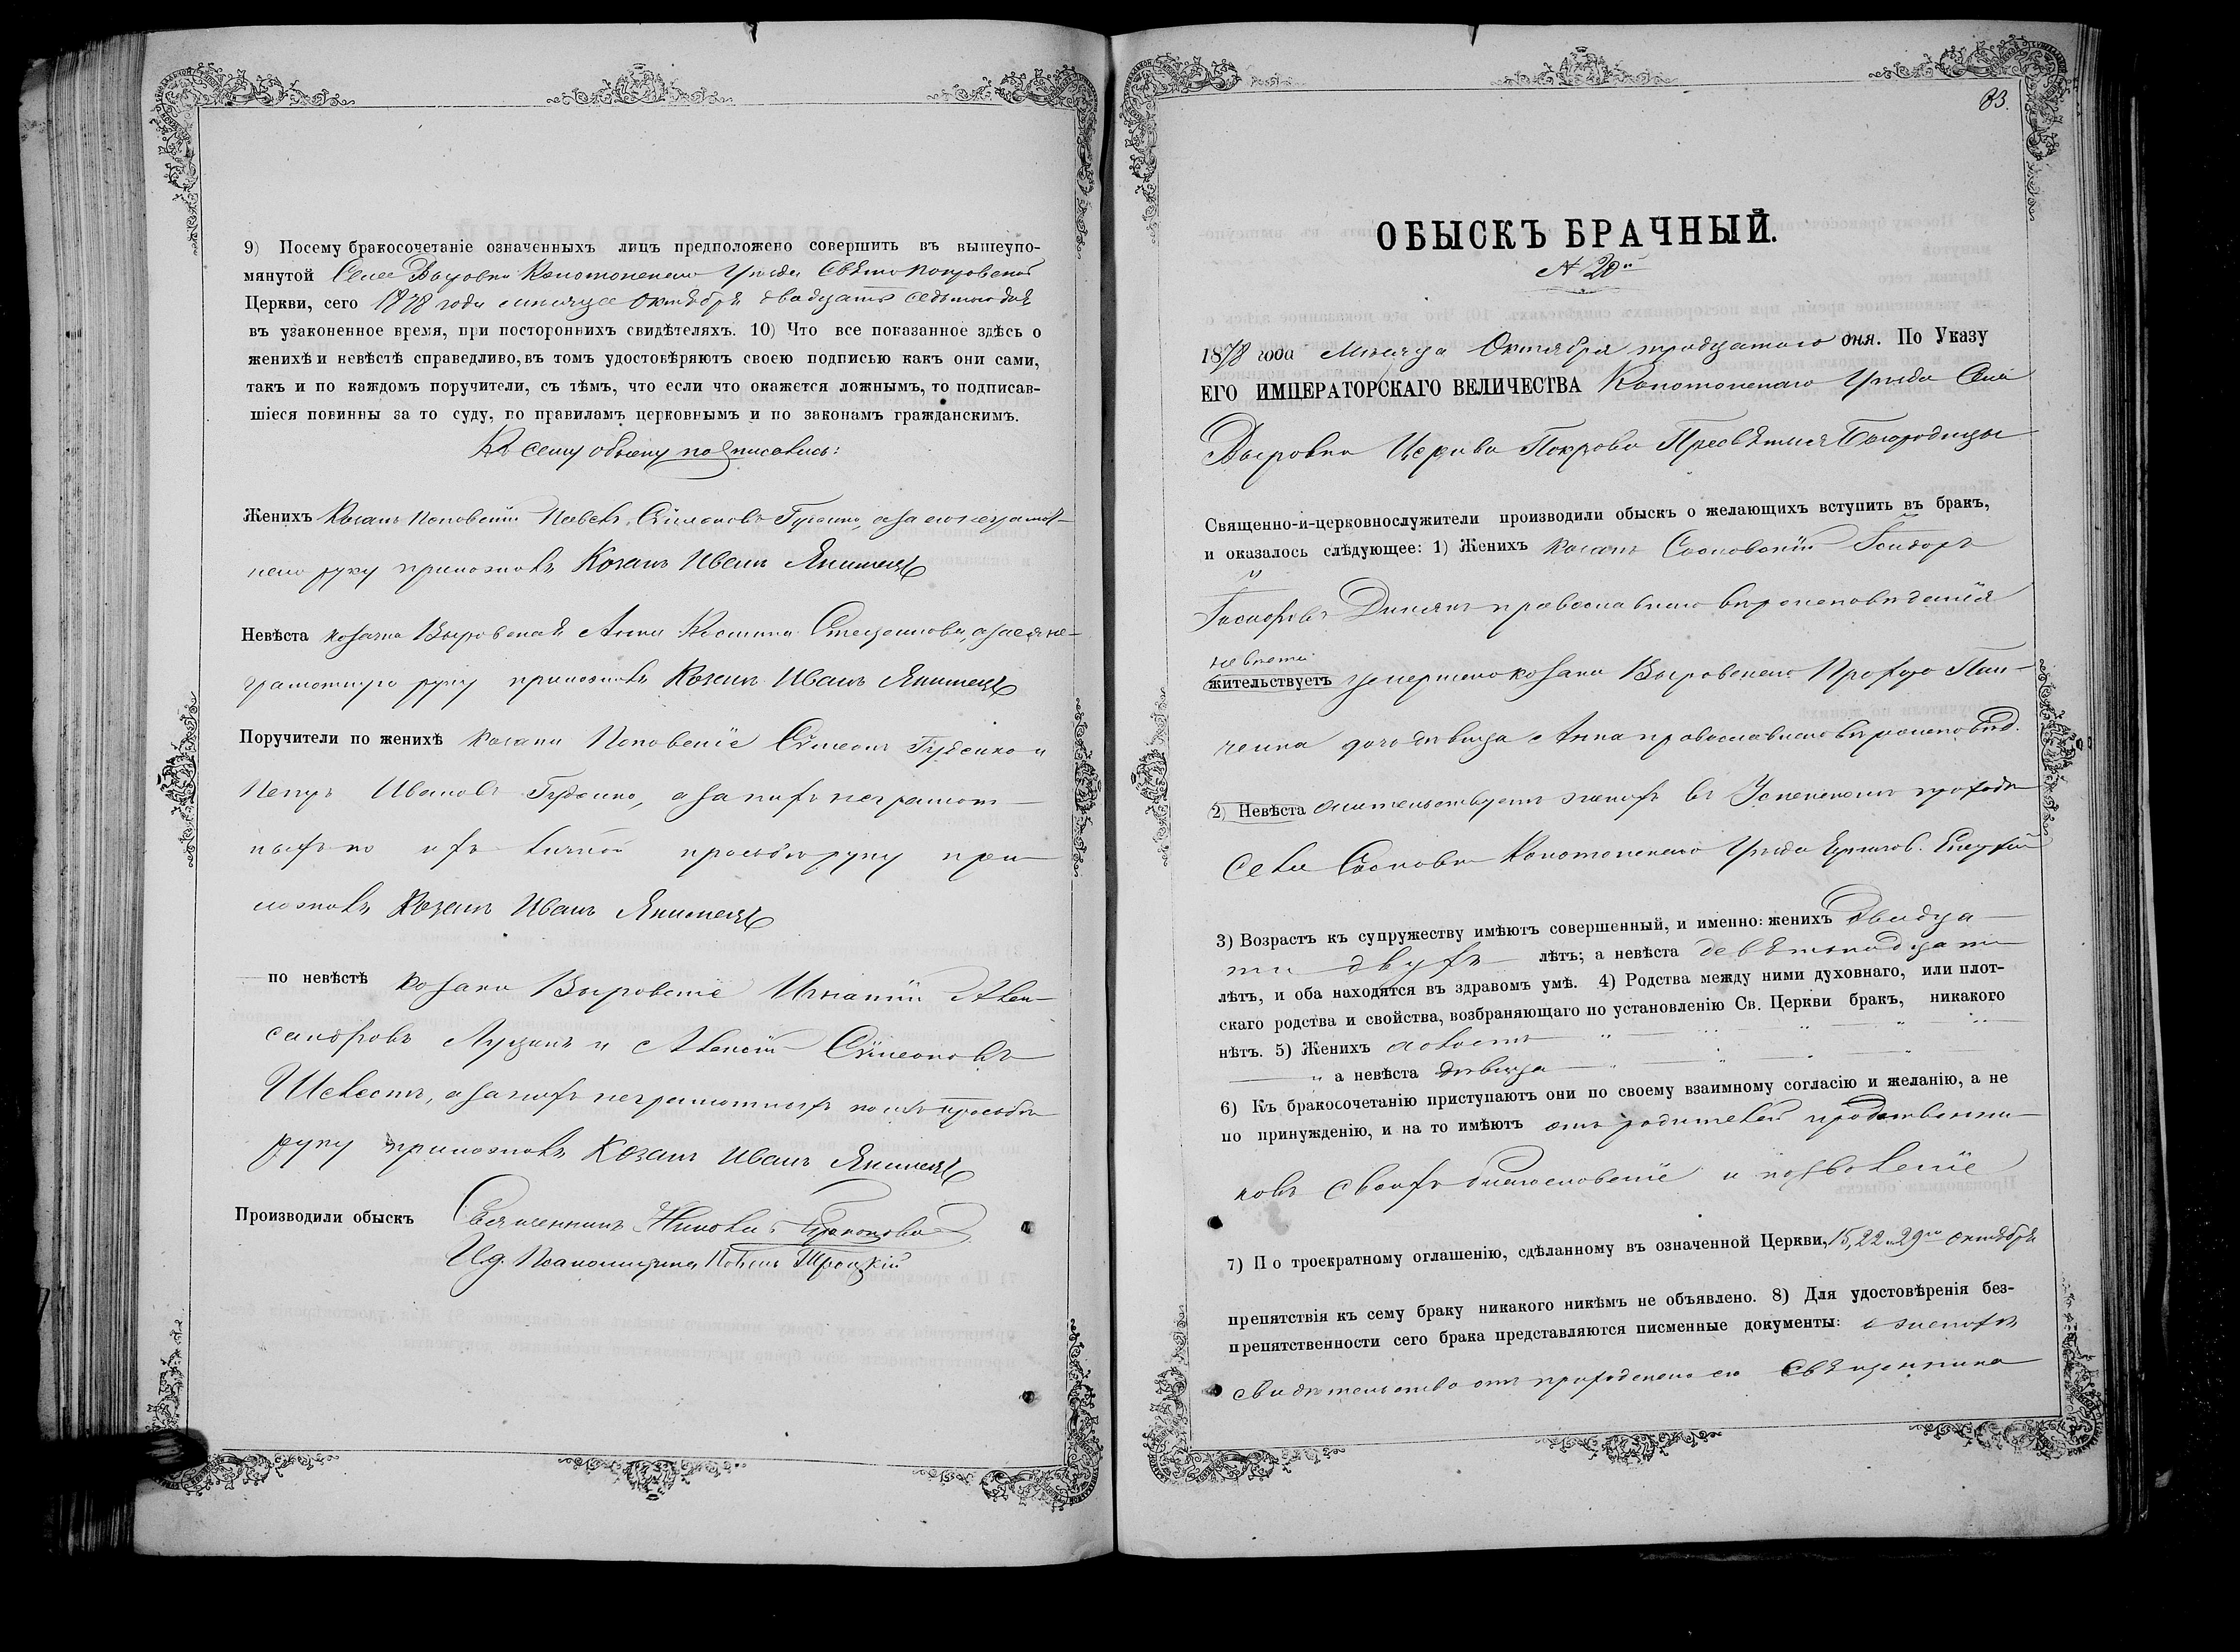 9) Посему бракосочетаніе означенныхъ лицъ предположено совершить въ вышеупо-
мянутой Селе Выровки Конотопскаго Уѣзда Свято Покровской
Церкви, сего 1878 года мѣсяца Октября двадцать седьмаго дня
въ узаконенное время, при постороннихъ свидѣтеляхъ. 10) Что все показанное здѣсь о
женихѣ и невѣстѣ справедливо, въ томъ удостовѣряютъ своею подписью какъ они сами,
такъ и по каждомъ поручители, съ тѣмъ, что если что окажется ложнымъ, то подписав-
шіеся повинны за то суду, по правиламъ церковнымъ и по законамъ гражданскимъ.
К сему обыску подписались:
Женихъ Козакъ Поповскій Павелъ Сѵмеоновъ, а за его неграмот-
наго руку приложилъ Козакъ Иванъ
Невѣста козачка Выровская Анна, а за ея не-
грамотную руку приложилъ Козакъ Иванъ
Поручители по женихѣ козаки Поповскіе Сѵмеонъ Гуденко и
Петръ Ивановъ Гуденко, а за нихъ неграмот-
ныхъ по ихъ личной просьбѣ руку при-
ложилъ Козакъ Иванъ
по невѣстѣ козаки Выровскіе Игнатій Алек-
сандровъ Луцикъ и Алексій Сѵмеоновъ
Шелестъ, а за нихъ неграмотныхъ по ихъ просьбѣ
руку приложилъ Козакъ Иванъ
Производили обыскъ Священникъ Николай
И.д. Псаломщика Троцкій
33.
ОБЫСКЪ БРАЧНЫЙ.
№ 20й
1878 года Мѣсяца Октября тридцатаго дня. По Указу
ЕГО ИМПЕРАТОРСКАГО ВЕЛИЧЕСТВА Конотопскаго Уѣзда Села
Выровки Церкви Покрова Пресвятыя Богородицы
Священно-и-церковнослужители производили обыскъ о желающихъ вступить въ бракъ,
и оказалось слѣдующее: 1) Женихъ козакъ Сосновскій Исидоръ
православнаго вѣроисповѣданія
невѣста
жительствуетъ умершаго козака Выровскаго Прохора Пан-
ченка дочь дѣвица Анна православнаго вѣроисповѣд.
2) Невѣста жительствуетъ женихъ въ Успенскомъ приходѣ
Села Сосновки Конотопскаго Уѣзда
3) Возрастъ къ супружеству имѣютъ совершенный, и именно: женихъ двадца-
ти двухъ лѣтъ; а невѣста девятнадцати
лѣтъ, и оба находятся въ здравомъ умѣ. 4) Родства между ними духовнаго, или плот-
скаго родства и свойства, возбраняющаго по установленію Св. Церкви бракъ, никакого
нѣтъ. 5) Женихъ холостъ
а невѣста дѣвица
6) Къ бракосочетанію приступаютъ они по своему взаимному согласію и желанію, а не
по принужденію, и на то имѣютъ отъ родителей и родственни-
ковъ своихъ благословеніе и позволеніе
7) По троекратному оглашенію, сдѣланному въ означенной Церкви, 15, 22 и 29го Октября
препятствія къ сему браку никакого никѣмъ не объявлено. 8) Для удостовѣренія без-
препятственности сего брака представляются писменные документы: о женихѣ
свидѣтельство отъ приходскаго его Священника